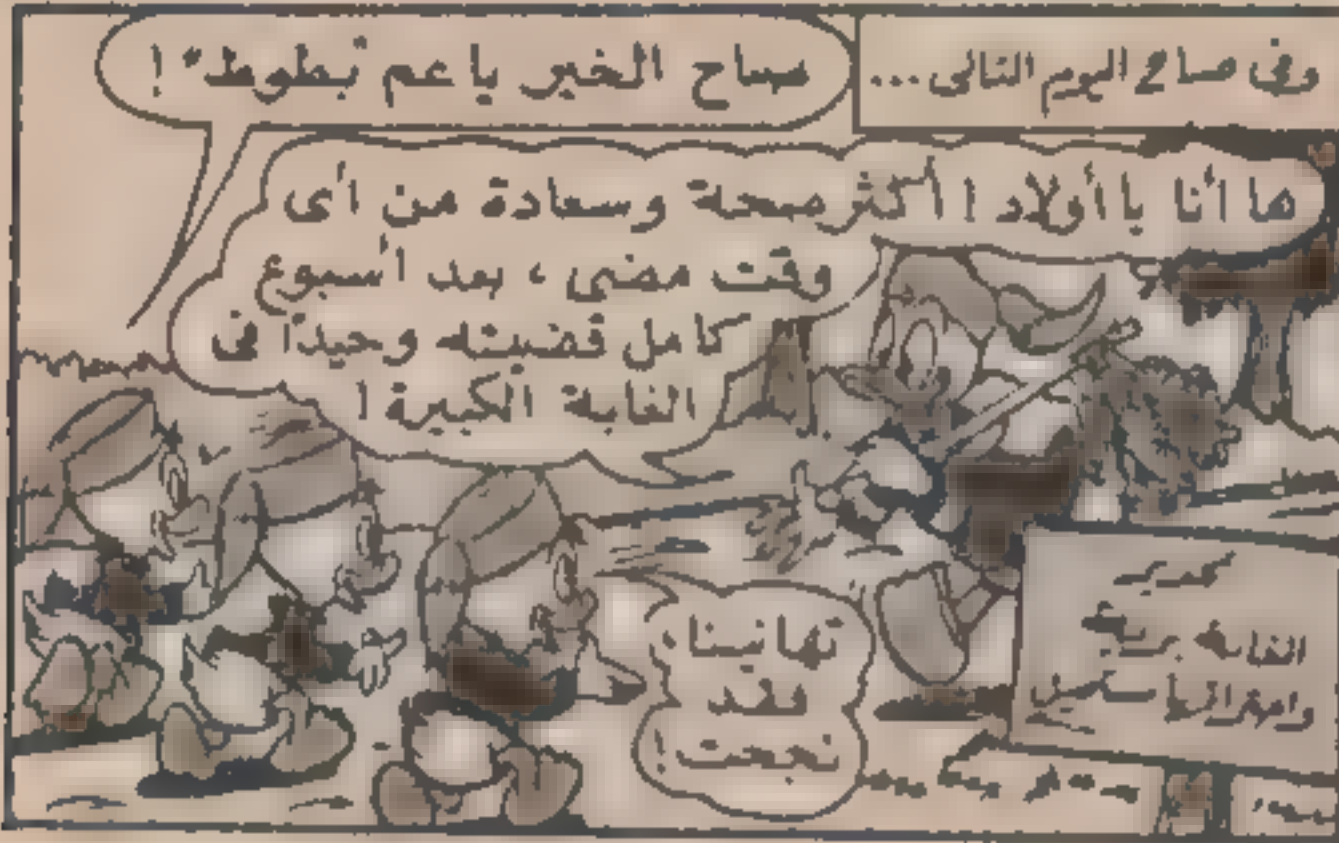 وفى صباح اليوم التالى...
صباح الخير يا عم "بطوط"!
ها أنا يا أولاد! أكثر صحة وسعادة من أى
وقت مضى، بعد أسبوع
كامل قضيته وحيدًا فى
الغابة الكبيرة!
تهانينا،
فقد
نجحت!
الغابة